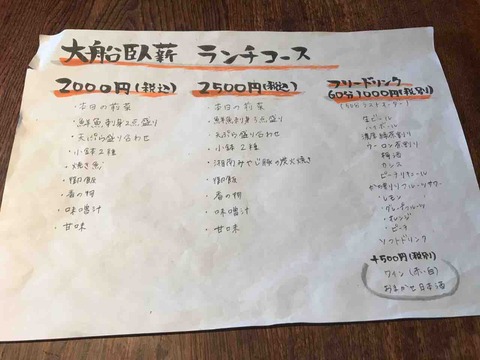 大船臥薪 ランチコース
2000円(税込)
・本日の前菜
・鮮魚刺身2点盛り
・天ぷら盛り合わせ
・小鉢2種
・焼き魚
・御飯
・香の物
・味噌汁
・甘味
2500円(税込)
・本日の前菜
・鮮魚刺身3点盛り
・天ぷら盛り合わせ
・小鉢2種
・湘南みやじ豚の炭火焼き
・御飯
・香の物
・味噌汁
・甘味
フリードリンク
60分1000円(税別)
生ビール
ハイボール
濃厚緑茶割り
ウーロン茶割り
梅酒
カシス
ピーチリキュール
・レモン
・グレープフルーツ
・オレンジ
・ピーチ
ソフトドリンク
+500円(税別)
ワイン(赤・白)
おまかせ日本酒